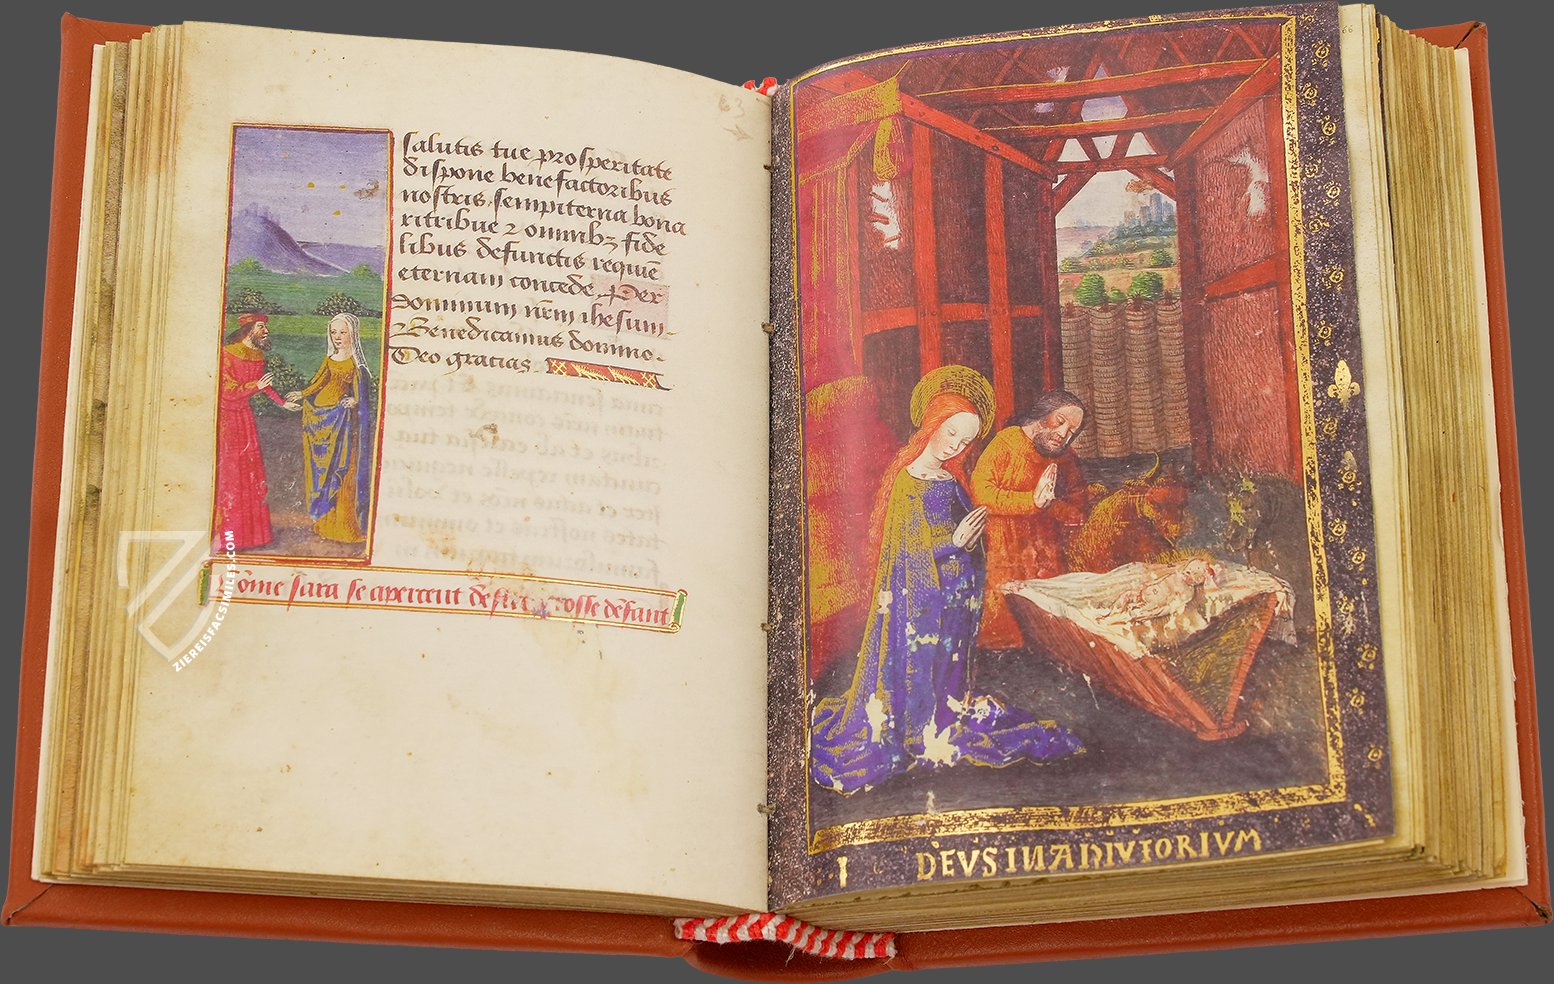 63
salutis tue prosperitate
dispone benefactoribus
nostris. sempiterna bona
ritribue ⁊ omnibꝫ fide
libus defunctis requiē
eternam concede. Per
dominum nr̄m ihesum.
Benedicamus domino.
Deo gracias
Cōme sara se aperceut de
ZIEREISFACSIMILES.COM
66
DEVS IN ADIVTORIVM